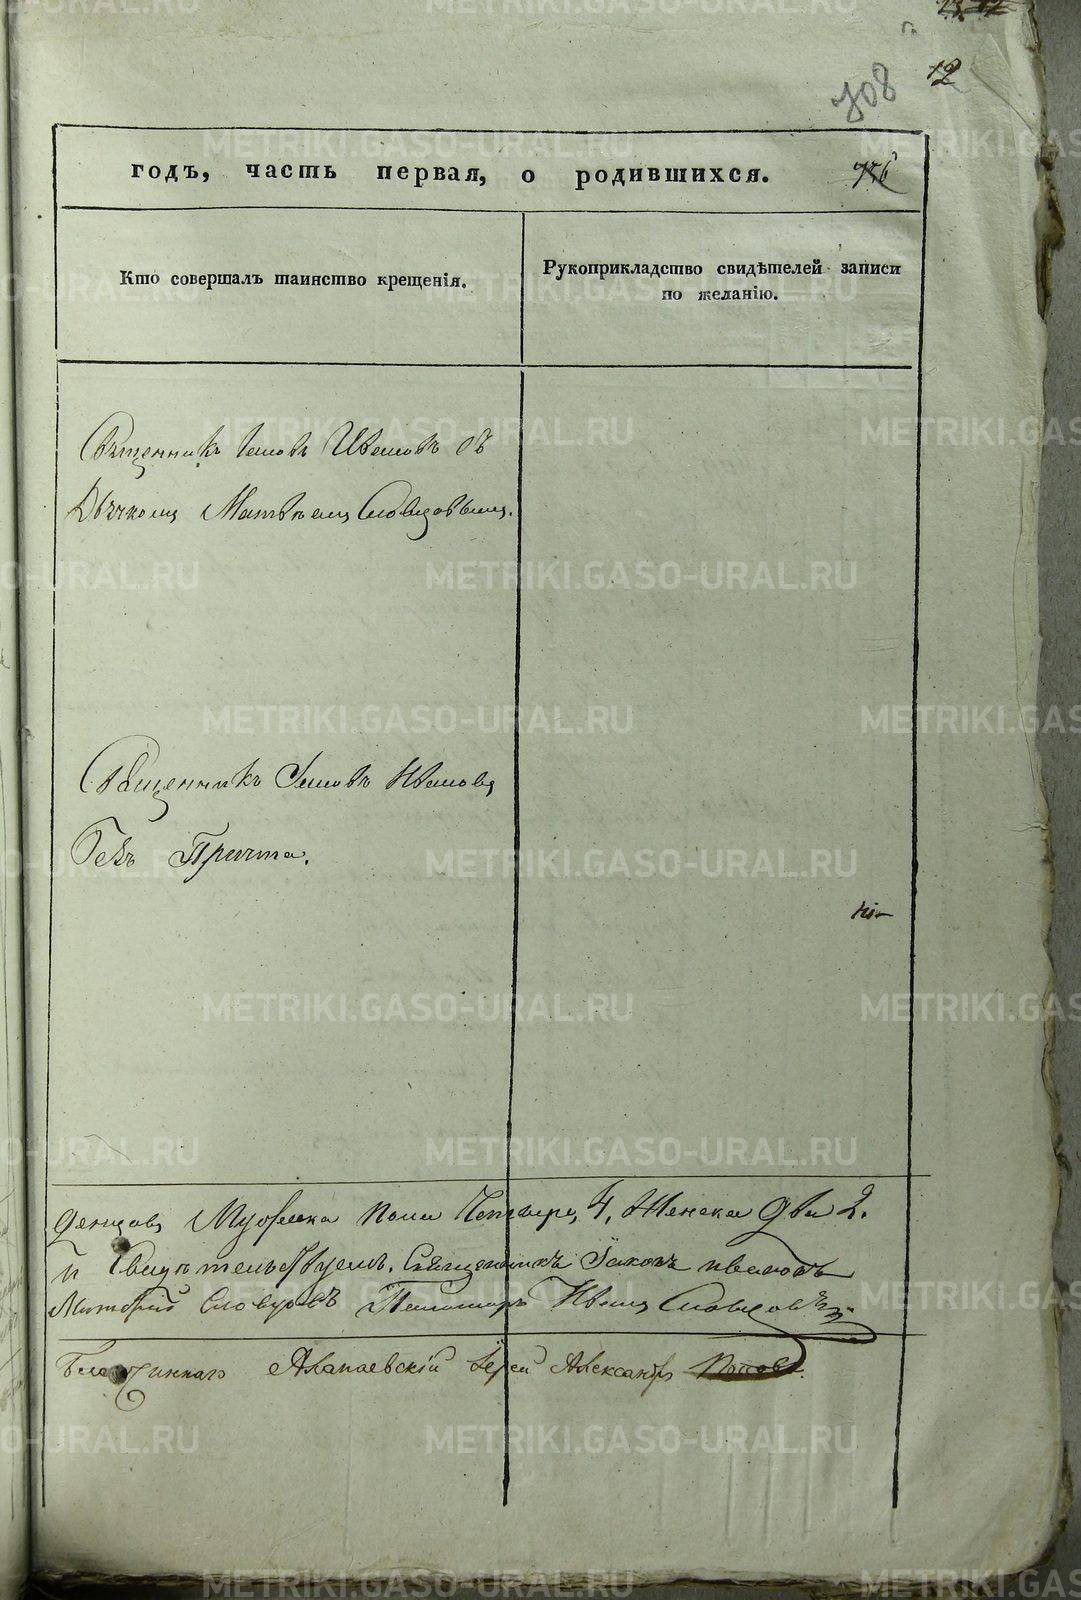 308
12
годъ, часть первая, о родившихся. 776
Кто совершалъ таинство крещенія.
Рукоприкладство свидѣтелей записи
по желанію.
Священникъ Іаковъ Ивановъ съ
Дьячкомъ Матвѣемъ Словцовымъ.
Священникъ Іаковъ Ивановъ
безъ Причта.
Мужеска пола Четыре, 4, Женска два 2.
и Свидѣтельствуемъ. Священникъ Іаковъ Ивановъ
Словцовъ Пономарь Иванъ Словцовъ
Алапаевскій Іерей Александръ Поповъ.
METRIKI.GASO-URAL.RU